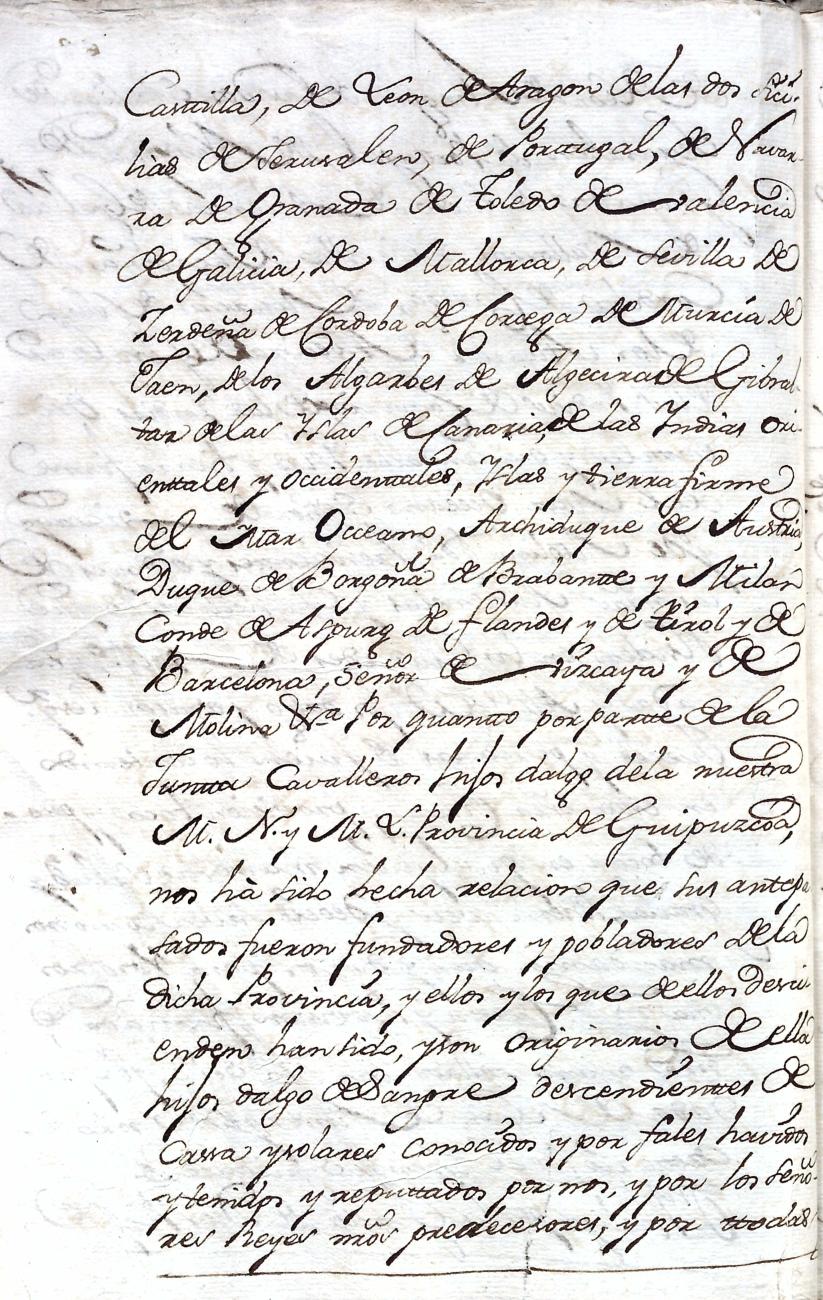 Casttilla, de Leon, de Aragon de las dos Sici-
lias de Jerusalen, de Porttugal, de Navar-
ra de Granada de Toledo de valencia
de Galicia, de Mallorca, de Sevilla de
Zerdeña de Cordoba de Corcega de Murcia de
Jaen, de los Algarbes de Algeciras de Gibral-
tar de las Yslas de Canaria, de las Yndias ori-
enttales y occidenttales, Yslas y tierra firme
del Mar Occeano, Archiduque de Austria,
Duque de Borgoña de Brabantte y Milan
Conde de Aspurg de flandes y de tirol y de
Barcelona, Señor de vizcaya y de
Molina &ta Por quantto por partte de la
Juntta Cavalleros hijos dalgo de la nuestra
M. N. y M. L. Provincia de Guipuzcoa,
nos hà sido hecha relacion que sus antepa
sados fueron fundadores y pobladores de la
dicha Provincia, y ellos y los que de ellos desci-
enden han sido, y son originarios de ella
hijos dalgo de Sangre descendienttes de
Cassa y solares conocidos y por tales havidos
y tenidos y reputtados por nos, y por los seño-
res Reyes nrõs predecesores, y por ttodas